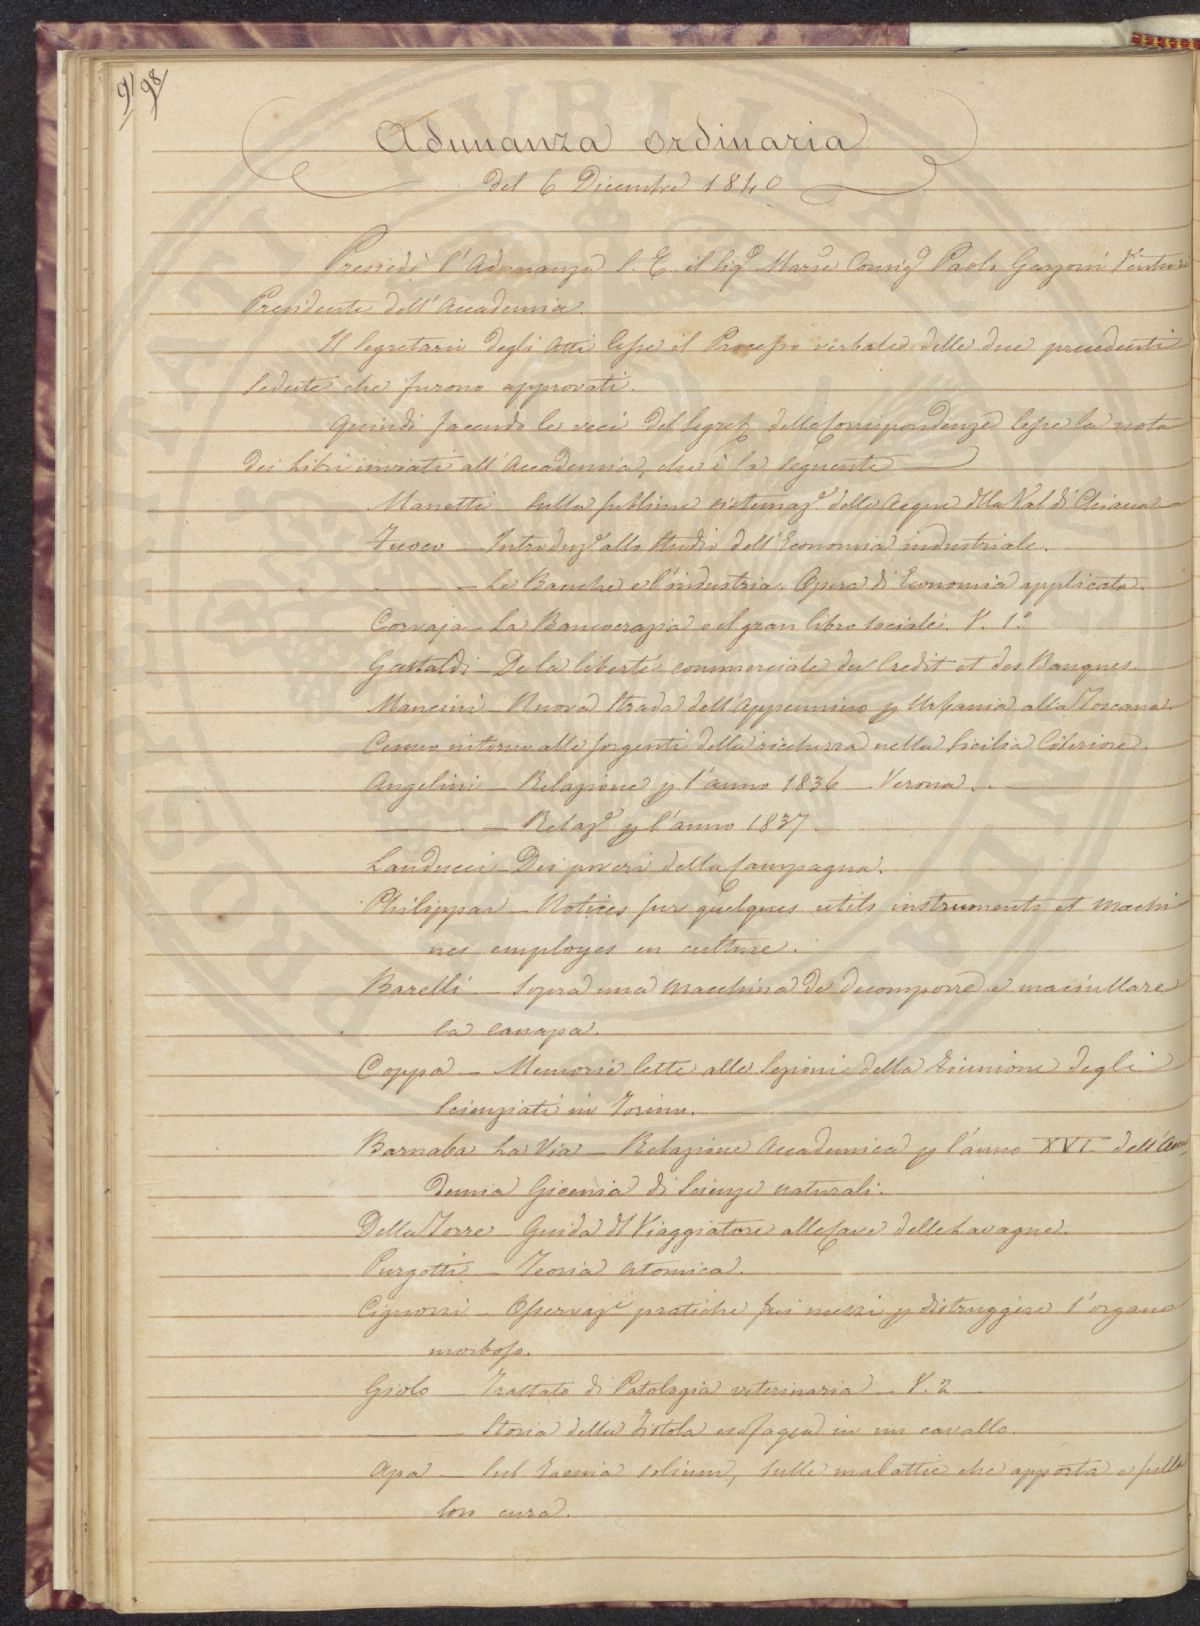 91 98
Adunanza ordinaria
del 6 Dicembre 1840
Presiedè l'Adunanza S. E. il Sigr Marse Consigr Paolo Garzoni Venturi
Presidente dell'Accademia.
Il Segretario degli Atti lesse il Processo verbale delle due precedenti
sedute che furono approvati.
Quindi facendo le veci del Segret. della Corrispondenza lesse la nota
dei Libri inviati all'Accademia, che è la seguente
Manetti - Sulla sistemaze delle Acque della Val di Chiana
Fuoco - Introduze allo studio dell'Economia industriale.
- Le Banche e l'industria. Opera di Economia applicata.
Corvaja - La Bancocrazia o il gran libro sociale. V. 1.o
Gastaldi - De la liberté commerciale du Credit et des Banques.
Mancini - Nuova Strada dell'Appennino p Urbania alla Toscana.
Cenno intorno alle sorgenti della ricchezza nella Sicilia Citeriore.
Angelini - Relazione p l'anno 1836 - Verona.
- Relaze p l'anno 1837.
Landucci - Dei poveri della Campagna.
Philippar - Notices sur quelques utils instruments et machi
nes employes en culture.
Barelli - Sopra una Macchina da decomporre e maciullare
la canapa.
Coppa - Memorie lette alle Sezioni della Riunione degli
Scienziati in Torino.
Barnaba La Via - Relazione Accademica p l'anno XVI dell'Acca
demia Gioenia di Scienze naturali.
Della Torre - Guida dl Viaggiatore alle Cave delle Lavagne.
Purgotti - Teoria atomica.
Cignozzi - Osservazi pratiche sui mezzi p distruggere l'organo
morboso.
Giolo - Trattato di Patologia veterinaria - V. 2
Storia della Fistola esofagea in un cavallo.
Apa - Sul Taenia solium, sulle malattie che apporta e sulla
loro cura.